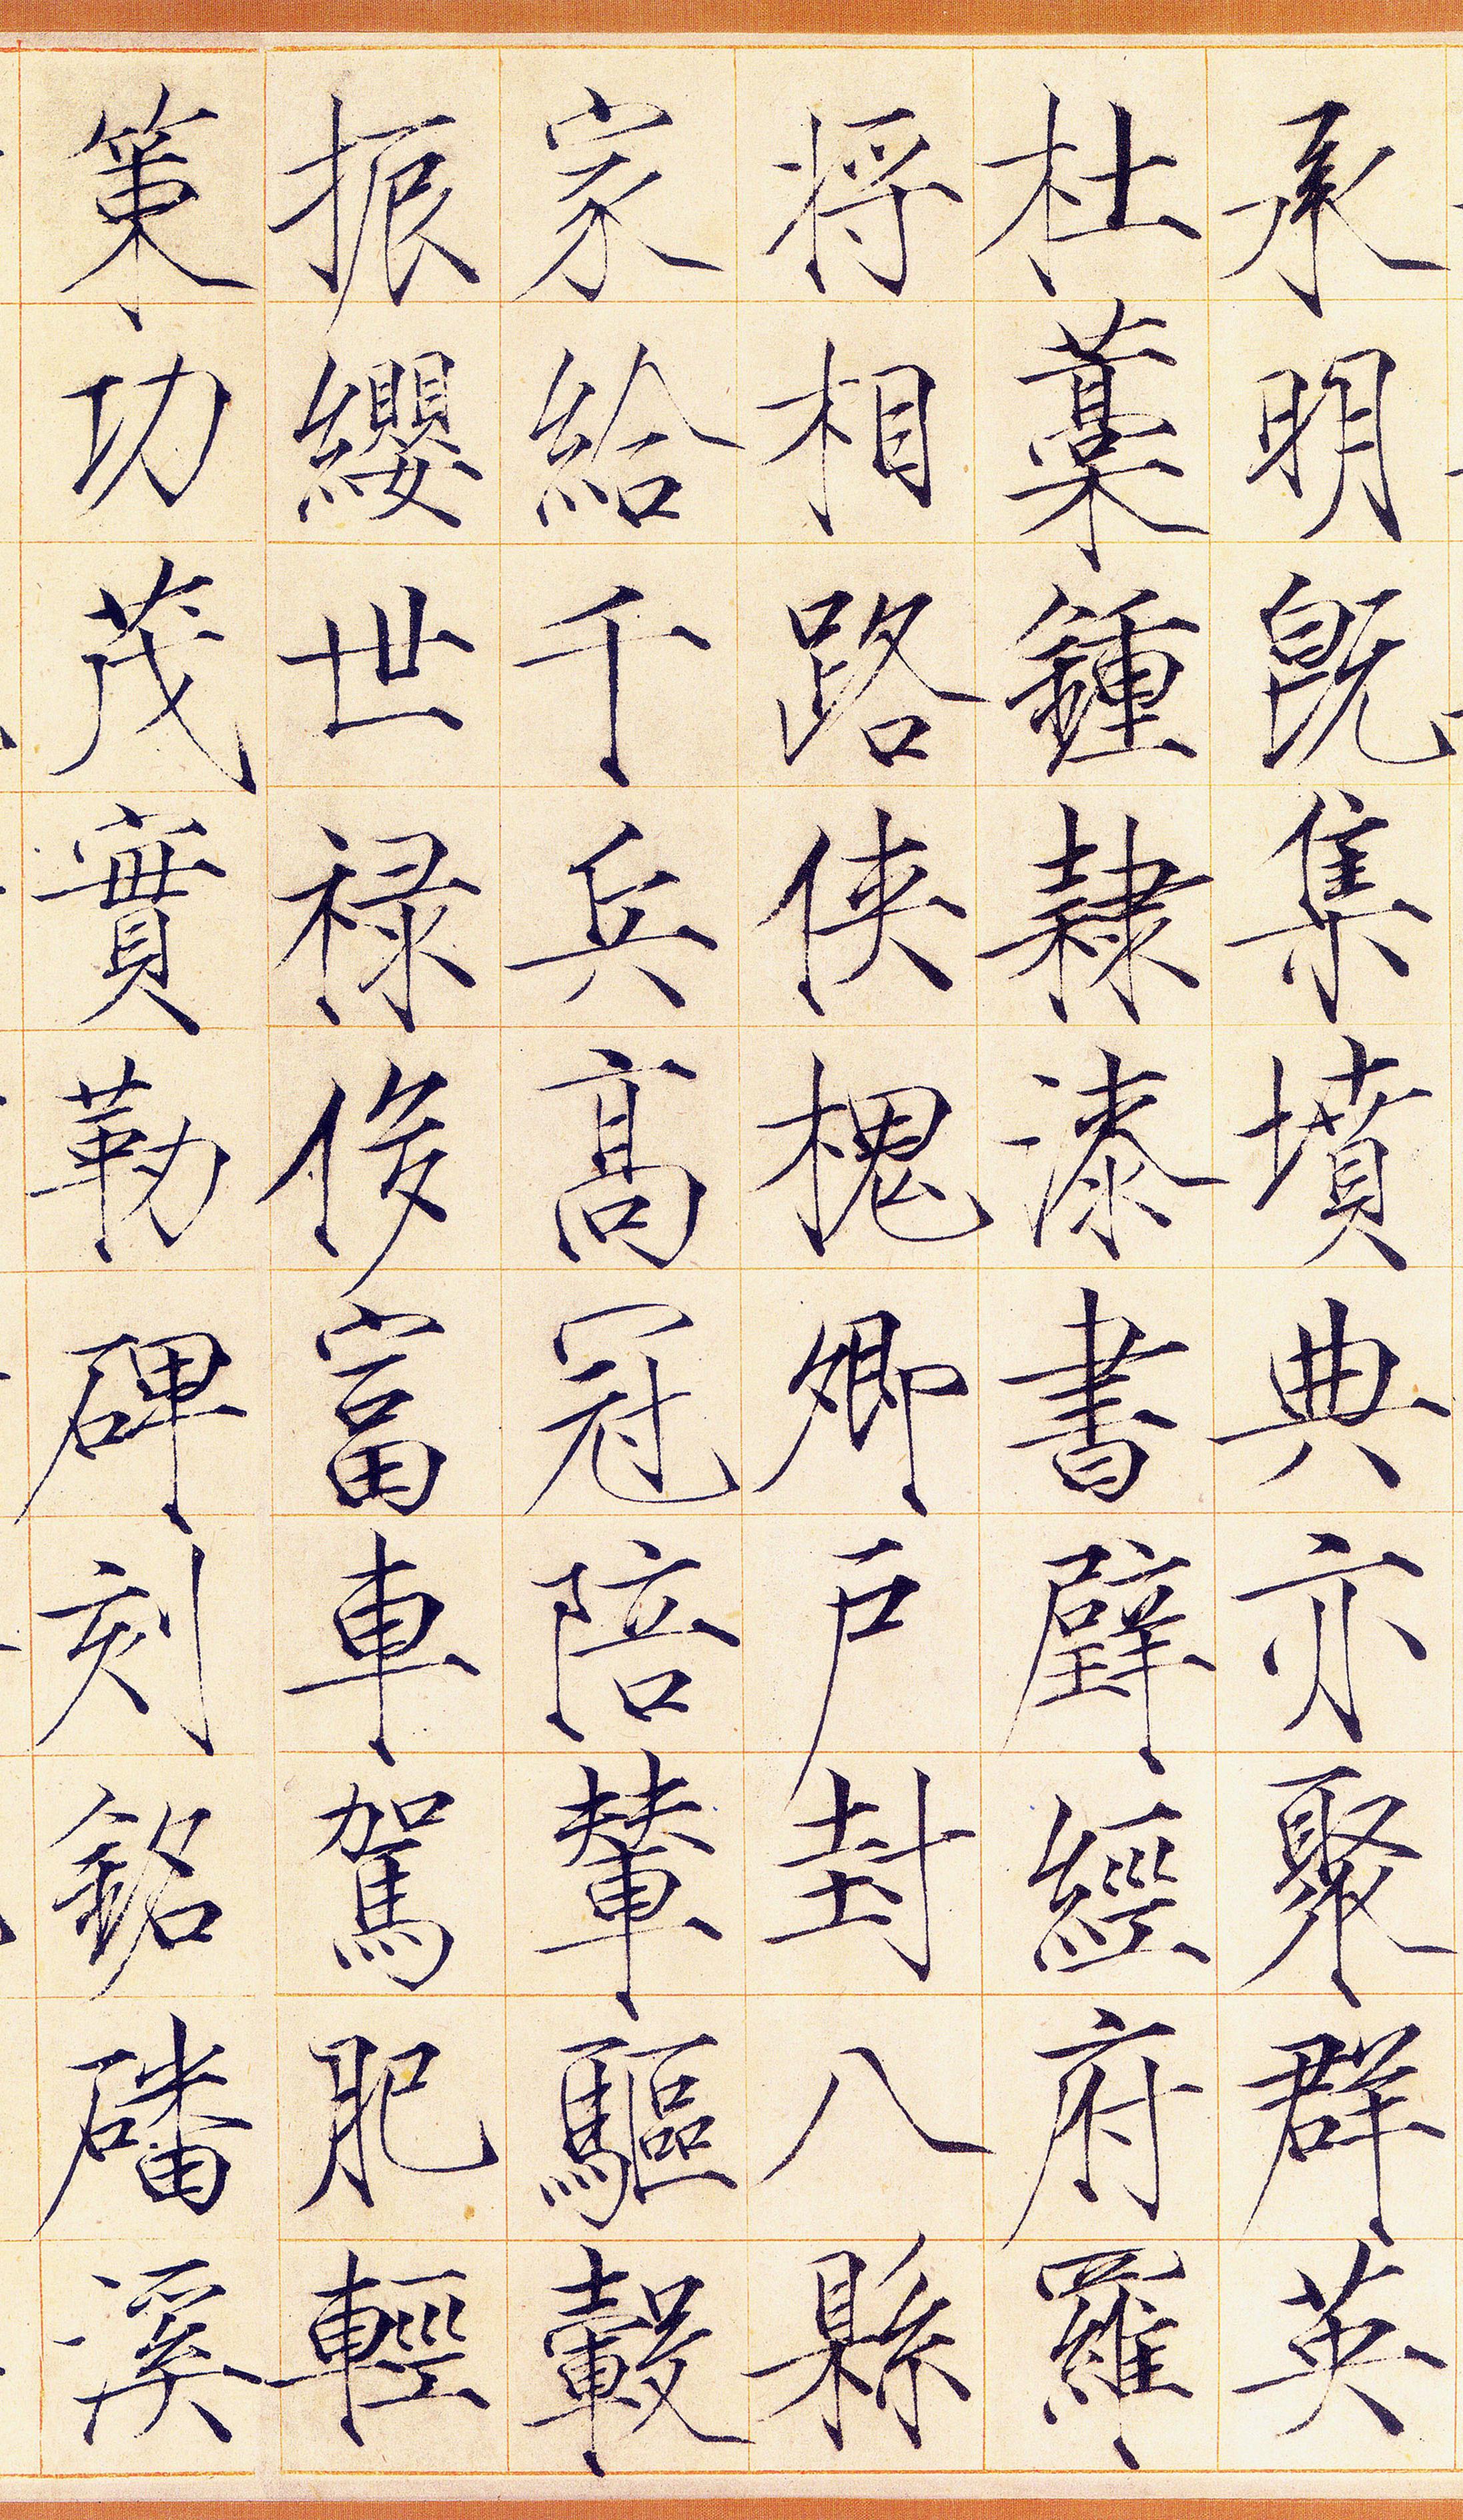 承明既集墳典亦聚群英
杜藁鍾隸漆書壁經府羅
将相路俠槐卿戶封八縣
家給千兵高冠陪輦驅轂
振纓世禄侈富車駕肥輕
策功茂實勒碑刻銘磻溪